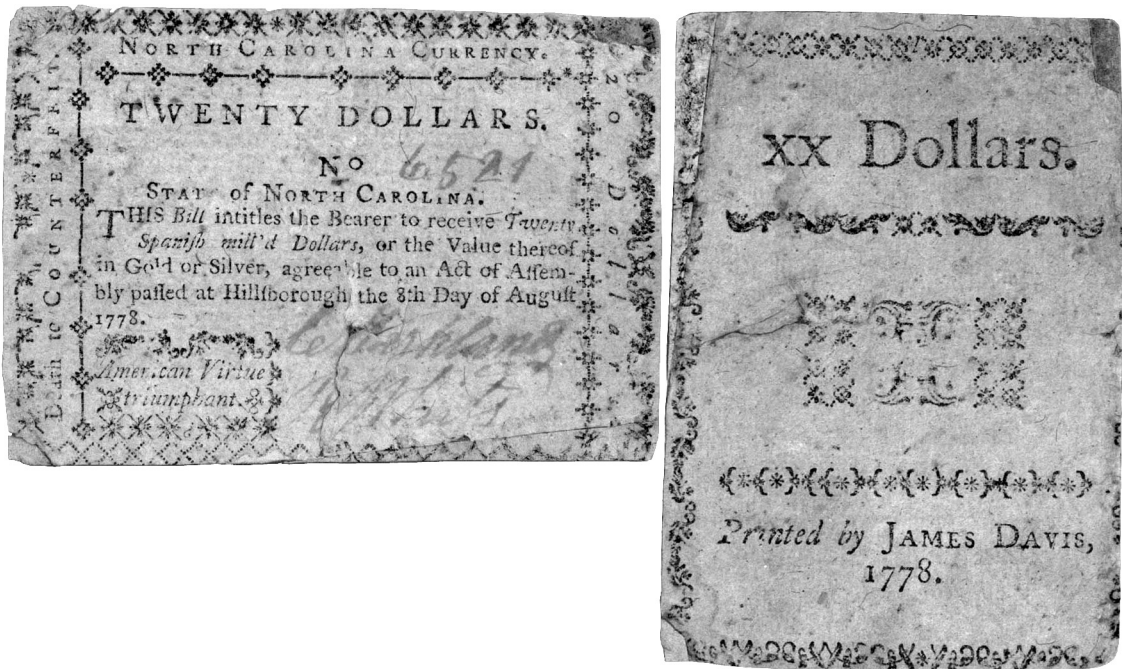 NORTH CAROLINA CURRENCY.
TWENTY DOLLARS.
No 6521
STAT of NORTH CAROLINA.
THIS Bill intitles the Bearer to receive Twenty
Spanish mill'd Dollars, or the Value thereof
in Gold or Silver, agreeable to an Act of Assem-
bly passed at Hillsborough the 8th Day of August
1778.
American Virtue
triumphant.
Death to COUNTERFEIT
20 Dollars
xx Dollars.
Printed by JAMES DAVIS,
1778.